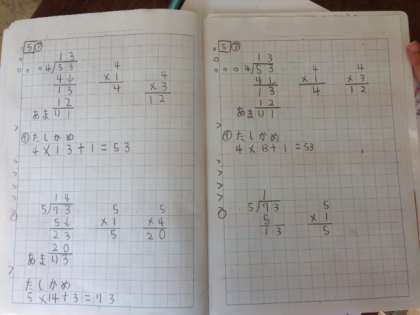 5 ①
13
4)53
4↓ 4 4
13 ×1 ×3
12 4 12
あまり1
① たしかめ
4×13+1=53
14
5)73
5↓ 5 5
23 ×1 ×4
20 5 20
あまり3
たしかめ
5×14+3=73
5 ①
13
4)53
4↓ 4 4
13 ×1 ×3
12 4 12
あまり1
① たしかめ
4×13+1=53
1
5)73
5 5
13 ×1
5